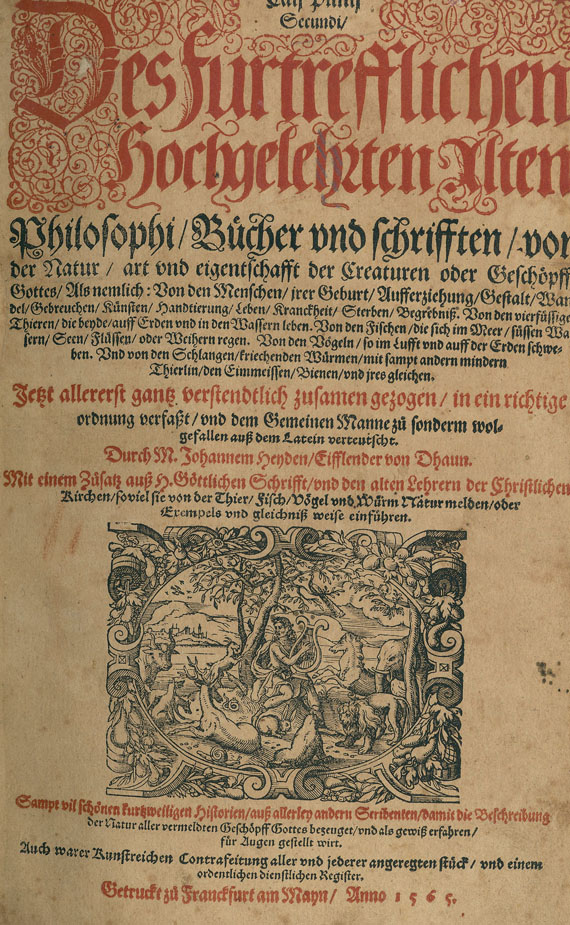 Caij Plinij
Secundi/
Des furtrefflichen
Hochgelehrten Alten
Philosophi/Bücher vnd schrifften/ von
der Natur/ art vnd eigentschafft der Creaturen oder Geschöpff
Gottes/ Als nemlich: Von den Menschen/ jrer Geburt/ Aufferziehung/ Gestalt/ Wan
del/ Gebreuchen/ Künsten/ Handtierung/ Leben/ Kranckheit/ Sterben/ Begrebniß. Von den vierfüssige
Thieren/ die beyde/ auff Erden vnd in den Wassern leben. Von den Fischen/ die sich im Meer/ süssen Wa
sern/ Seen/ Flüssen/ oder Weihern regen. Von den Vögeln/ so im Lufft vnd auff der Erden schwe-
ben. Vnd von den Schlangen/ kriechenden Würmen/ mit sampt andern mindern
Thierlin/ den Eimmeissen/ Bienen/ vnd jres gleichen.
Jetzt allererst gantz verstendtlich zusamen gezogen/ in ein richtige
ordnung verfaßt/ vnd dem Gemeinen Manne zů sonderm wol-
gefallen auß dem Latein verteutscht.
Durch M. Johannem Heyden/ Eifflender von Dhaun.
Mit einem Zůsatz auß H. Göttlichen Schrifft/ vnd den alten Lehrern der Christlichen
Kirchen/ so viel sie von der Thier/ Fisch/ Vögel vnd Würm Natur melden/ oder
Exempels vnd gleichniß weise einführen.
Sampt vil schönen kurtzweiligen Historien/ auß allerley andern Scribenten/ damit die Beschreibung
der Natur aller vermeldten Geschöpff Gottes bezeuget/ vnd als gewiß erfahren/
für Augen gestellt wirt.
Auch warer Kunstreichen Contrafeitung aller vnd jederer angeregten stück/ vnd einem
ordentlichen dienstlichen Register.
Getruckt zů Franckfurt am Mayn/ Anno 1565.